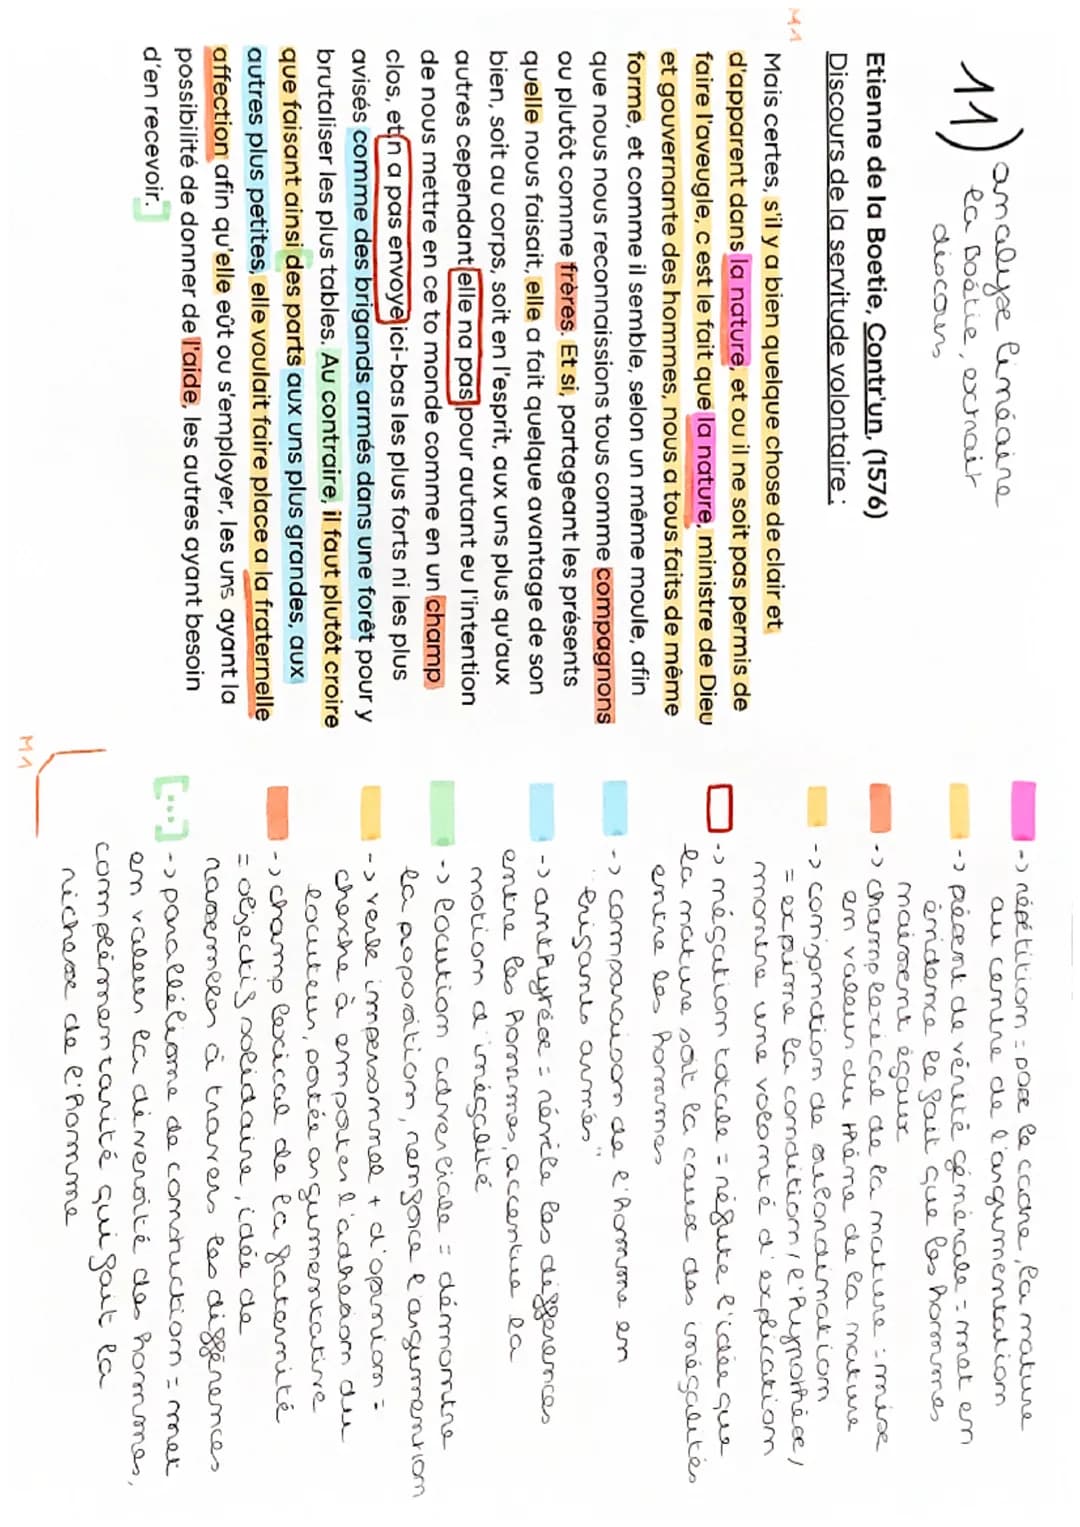 11) analyse linéaire
la Boétie, extrait
discours
Etienne de la Boetie, Contr'un, (1576)
Discours de la servitude volontaire :
M1
Mais certes, s'il y a bien quelque chose de clair et
d'apparent dans la nature, et ou il ne soit pas permis de
faire l'aveugle, c est le fait que la nature, ministre de Dieu
et gouvernante des hommes, nous a tous faits de même
forme, et comme il semble, selon un même moule, afin
que nous nous reconnaissions tous comme compagnons
ou plutôt comme frères. Et si, partageant les présents
quelle nous faisait, elle a fait quelque avantage de son
bien, soit au corps, soit en l'esprit, aux uns plus qu'aux
autres cependant elle na pas pour autant eu l'intention
de nous mettre en ce to monde comme en un champ
clos, et n a pas envoye ici-bas les plus forts ni les plus
avisés comme des brigands armés dans une forêt pour y
brutaliser les plus tables. Au contraire, il faut plutôt croire
que faisant ainsi des parts aux uns plus grandes, aux
autres plus petites, elle voulait faire place a la fraternelle
affection afin qu'elle eût ou s'employer, les uns ayant la
possibilité de donner de l'aide, les autres ayant besoin
d'en recevoir.]
-> répétition = pose le cadre, la nature
au centre de l'argumentation
-> présent de vérité générale = met en
évidence le fait que les hommes
naissent égaux
-> champ lexical de la nature : mise
en valeur du thème de la nature
-> conjonction de subordination
= exprime la condition / l'hypothèse /
montre une volonté d'explication
-> négation totale = réfute l'idée que
la nature soit la cause des inégalités
entre les hommes
-> comparaison de l'homme en
"brigants armés"
-> antithèse = révèle les différences
entre les hommes, accentue la
notion d'inégalité
-> locution adverbiale = démontre
la proposition, renforce l'argumention
-> verbe impersonnel + d'opinion =
cherche à emporter l'adhésion du
locuteur, portée argumentative
-> champ lexical de la fraternité
= objectif solidaire, idée de
rassembler à travers les différences
[...] -> parallélisme de construction = met
en valeur la diversité des hommes,
complémentarité qui fait la
richesse de l'homme
M1